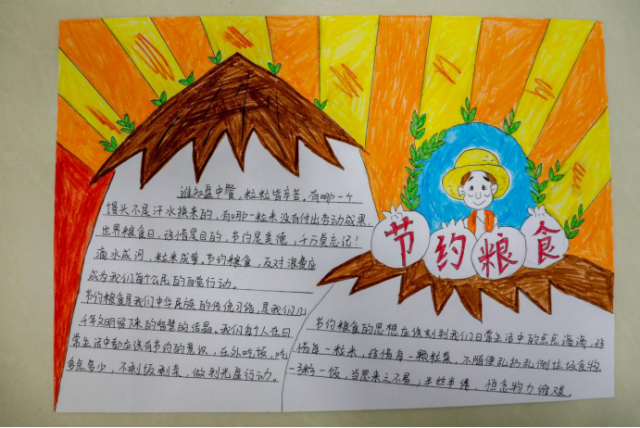 谁知盘中餐,粒粒皆辛苦。有哪一个
馒头不是汗水换来的,有哪一粒米没有付出劳动成果
世界粮食日,珍惜是目的,节约是美德,千万莫忘记!
滴水成河,粒米成箩,节约粮食,反对浪费应
成为我们每个公民的自觉行动。
节约粮食是我们中华民族的传统习俗,是我们几
千年文明留下来的智慧的结晶。我们每个人在日
常生活中都应该有节约的意识,在外吃饭,吃
多点多少,不剩饭剩菜,做到光盘行动。
节约粮食
节约粮食的思想应该刻到我们日常生活中的点点滴滴,珍
惜每一粒米,珍惜每一颗粒菜,不随便乱扔乱倒垃圾食物
一粥一饭,当思来之不易,半丝半缕,恒念物力维艰.